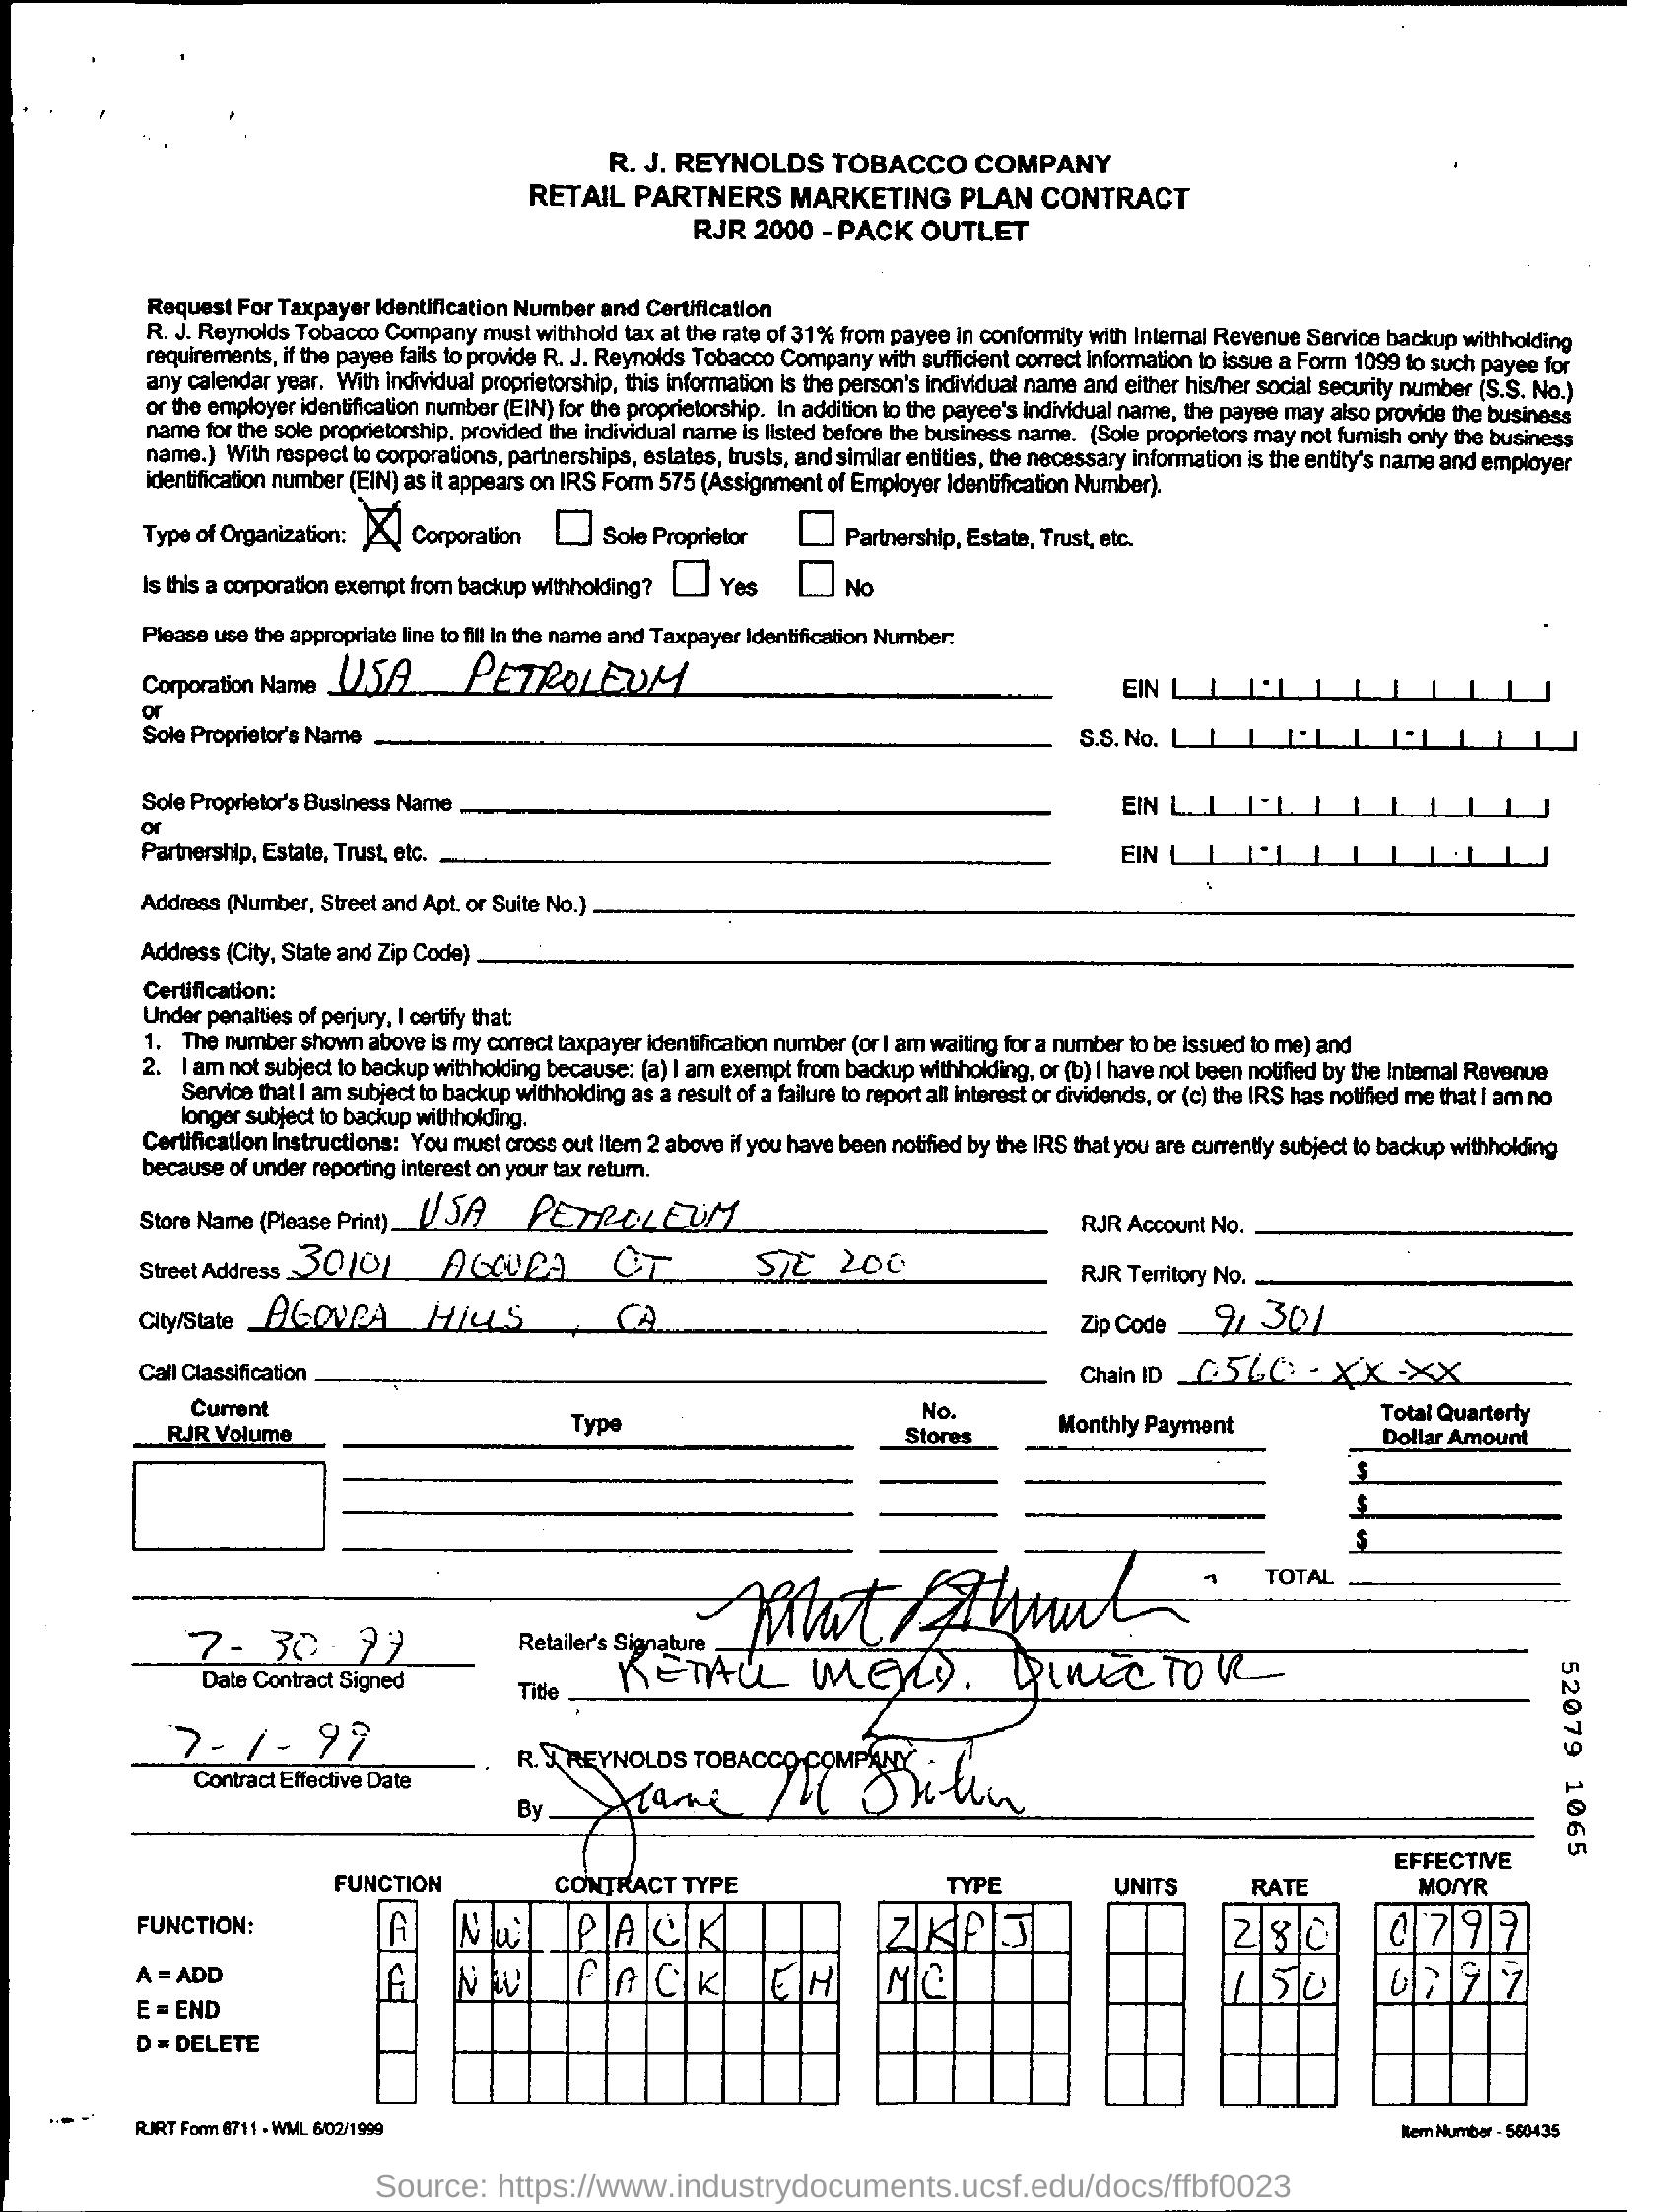 R. J. REYNOLDS TOBACCO COMPANY
RETAIL PARTNERS MARKETING PLAN CONTRACT
RJR 2000 - PACK OUTLET
Request For Taxpayer Identification Number and Certification
R. J. Reynolds Tobacco Company must withhold tax at the rate of 31% from payee in conformity with Internal Revenue Service backup withholding
requirements, if the payee fails to provide R. J. Reynolds Tobacco Company with sufficient correct information to issue a Form 1099 to such payee for
any calendar year. With individual proprietorship, this information is the person's individual name and either his/her social security number (S.S. No.)
or the employer identification number (EIN) for the proprietorship. In addition to the payee's individual name, the payee may also provide the business
name for the sole proprietorship, provided the individual name is listed before the business name. (Sole proprietors may not furnish only the business
name.) With respect to corporations, partnerships, estates, trusts, and similar entities, the necessary information is the entity's name and employer
identification number (EIN) as it appears on IRS Form 575 (Assignment of Employer Identification Number).
Type of Organization: X Corporation Sole Proprietor Partnership, Estate, Trust, etc.
Is this a corporation exempt from backup withholding? Yes No
Please use the appropriate line to fill in the name and Taxpayer Identification Number:
Corporation Name USA PETROLEUM EIN
or
Sole Proprietor's Name S.S. No.
Sole Proprietor's Business Name EIN
or
Partnership, Estate, Trust, etc. EIN
Address (Number, Street and Apt. or Suite No.)
Address (City, State and Zip Code)
Certification:
Under penalties of perjury, I certify that:
1. The number shown above is my correct taxpayer identification number (or I am waiting for a number to be issued to me) and
2. I am not subject to backup withholding because: (a) I am exempt from backup withholding, or (b) I have not been notified by the Internal Revenue
Service that I am subject to backup withholding as a result of a failure to report all interest or dividends, or (c) the IRS has notified me that I am no
longer subject to backup withholding.
Certification Instructions: You must cross out item 2 above if you have been notified by the IRS that you are currently subject to backup withholding
because of under reporting interest on your tax return.
Store Name (Please Print) USA PETROLEUM RJR Account No.
Street Address 30101 AGOURA CT STE 200 RJR Territory No.
City/State AGOURA HILLS, CA Zip Code 91301
Call Classification Chain ID 0560-XX-XX
Current RJR Volume Type No. Stores Monthly Payment Total Quarterly Dollar Amount
$
$
$
TOTAL
7-30-99 Retailer's Signature
Date Contract Signed Title RETAIL MGND. DIRECTOR
7-1-99 R. J. REYNOLDS TOBACCO COMPANY
Contract Effective Date By
52079 1065
FUNCTION CONTRACT TYPE TYPE UNITS RATE EFFECTIVE MO/YR
FUNCTION: A NW PACK ZKPJ 280 0799
A = ADD A NW PACK EH MC 150 0799
E = END
D = DELETE
RJRT Form 6711 - WML 6/02/1999 Item Number - 560435
Source: https://www.industrydocuments.ucsf.edu/docs/ffbf0023